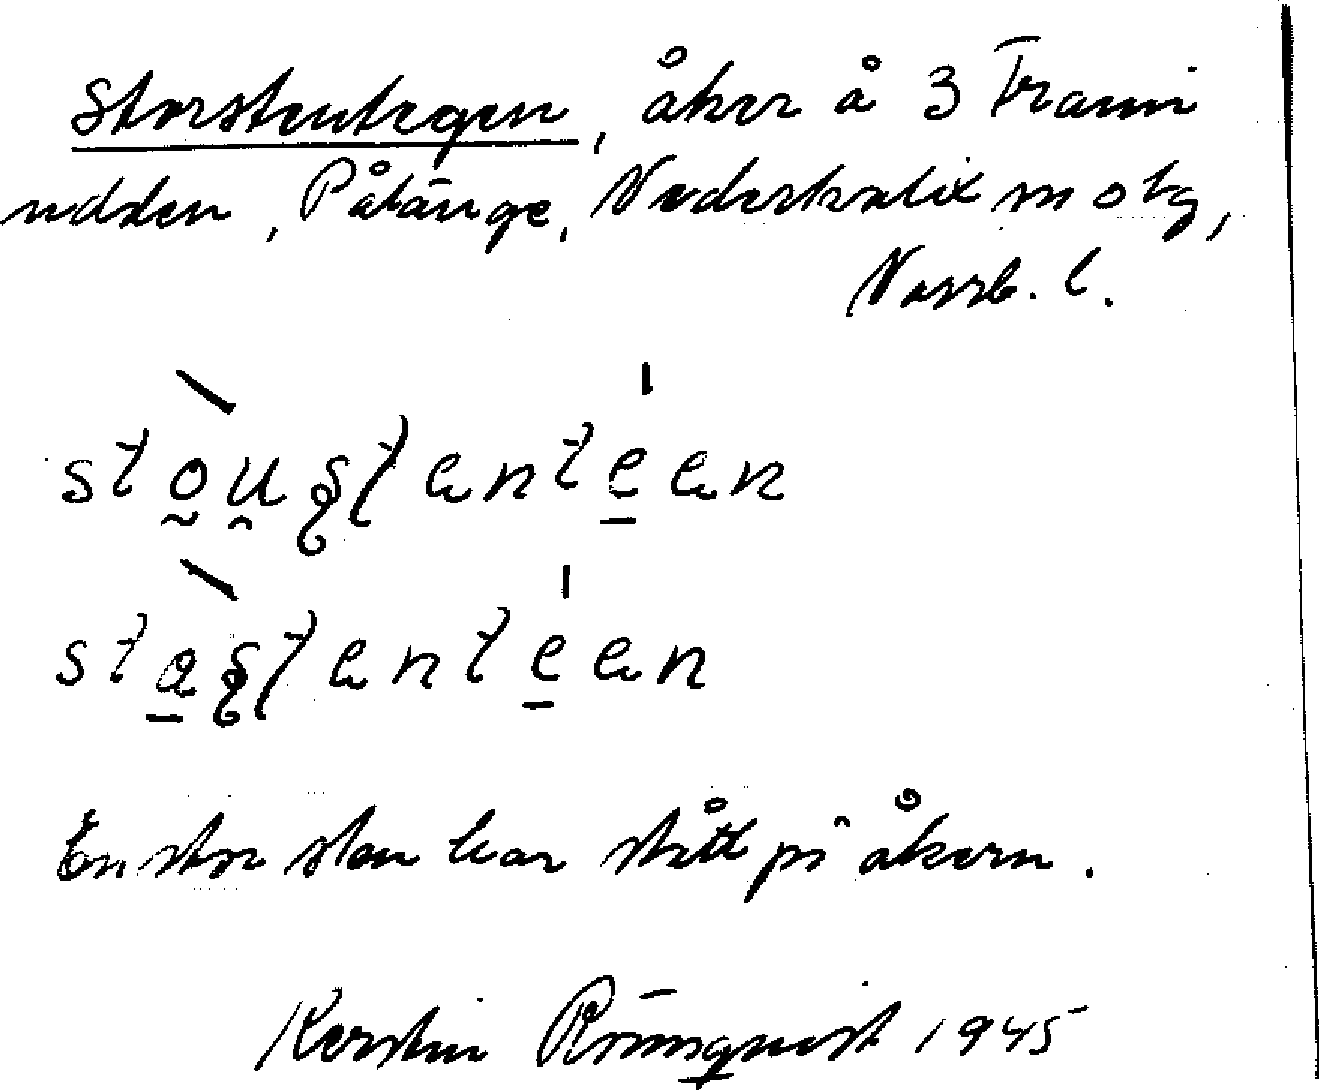 Storstentegen, åker å 3 Frami
udden, Påläng​e, Nederkalix sn o tg,
Norrb. l.
stouʂʈentean
staʂʈentean
En stor sten har stått på åkern.
Kerstin Rönnquist 1945